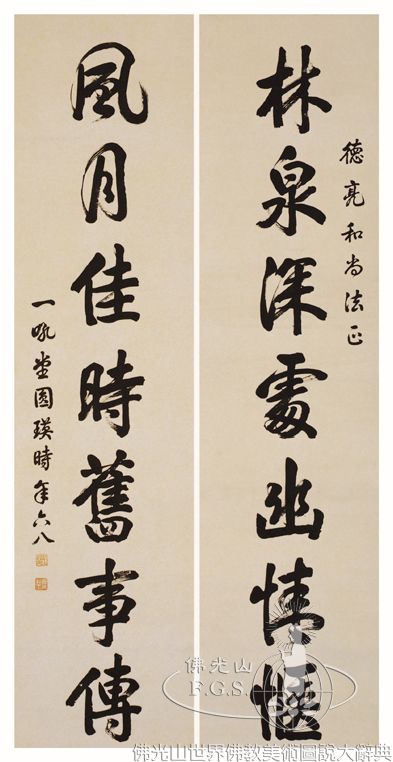 德亮和尚法正
林泉深處幽情愜
風月佳時舊事傳
一吼堂圓瑛時年六八
佛光山
F.G.S.
佛光山世界佛教美術圖說大辭典